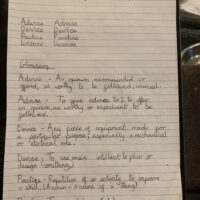 Advice Advise
Device Devise
Practice Practise
Licence License
Glossary
Advice - An opinion recommended or
offered, as worthy to be followed; counsel.
Advise - To give advice to; to offer
an opinion, as worthy or expedient to be
followed.
Device - Any piece of equipment made for
a particular purpose, especially a mechanical
or electrical one.
Devise - To use one's intellect to plan or
design (something)
Practice - Repetition of an activity to improve
a skill. (A noun - a name of a thing)